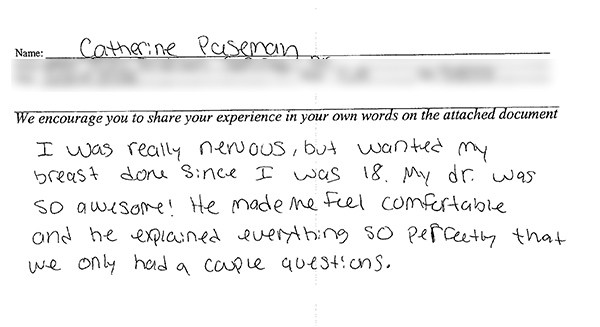 Name: Catherine Paseman
We encourage you to share your experience in your own words on the attached document
I was really nervous, but wanted my
breast done since I was 18. My dr. was
so awesome! He made me feel comfertable
and he explained everything so perfectly that
we only had a couple questions.